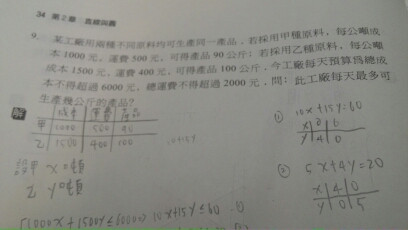 34 第2章：直線與圓
9. 某工廠用兩種不同原料均可生產同一產品，若採用甲種原料，每公噸成
本1000元，運費500元，可得產品90公斤；若採用乙種原料，每公噸
成本1500元，運費400元，可得產品100公斤，今工廠每天預算為總成
本不得超過6000元，總運費不得超過2000元，問：此工廠每天最多可
生產幾公斤的產品？
解
成本 運費 產品
甲 1000 500 90
乙 1500 400 100
設甲 x 噸
乙 y 噸
10x+15y≤60
① 10x+15y=60
x 0 6
y 4 0
② 5x+4y=20
x 4 0
y 0 5